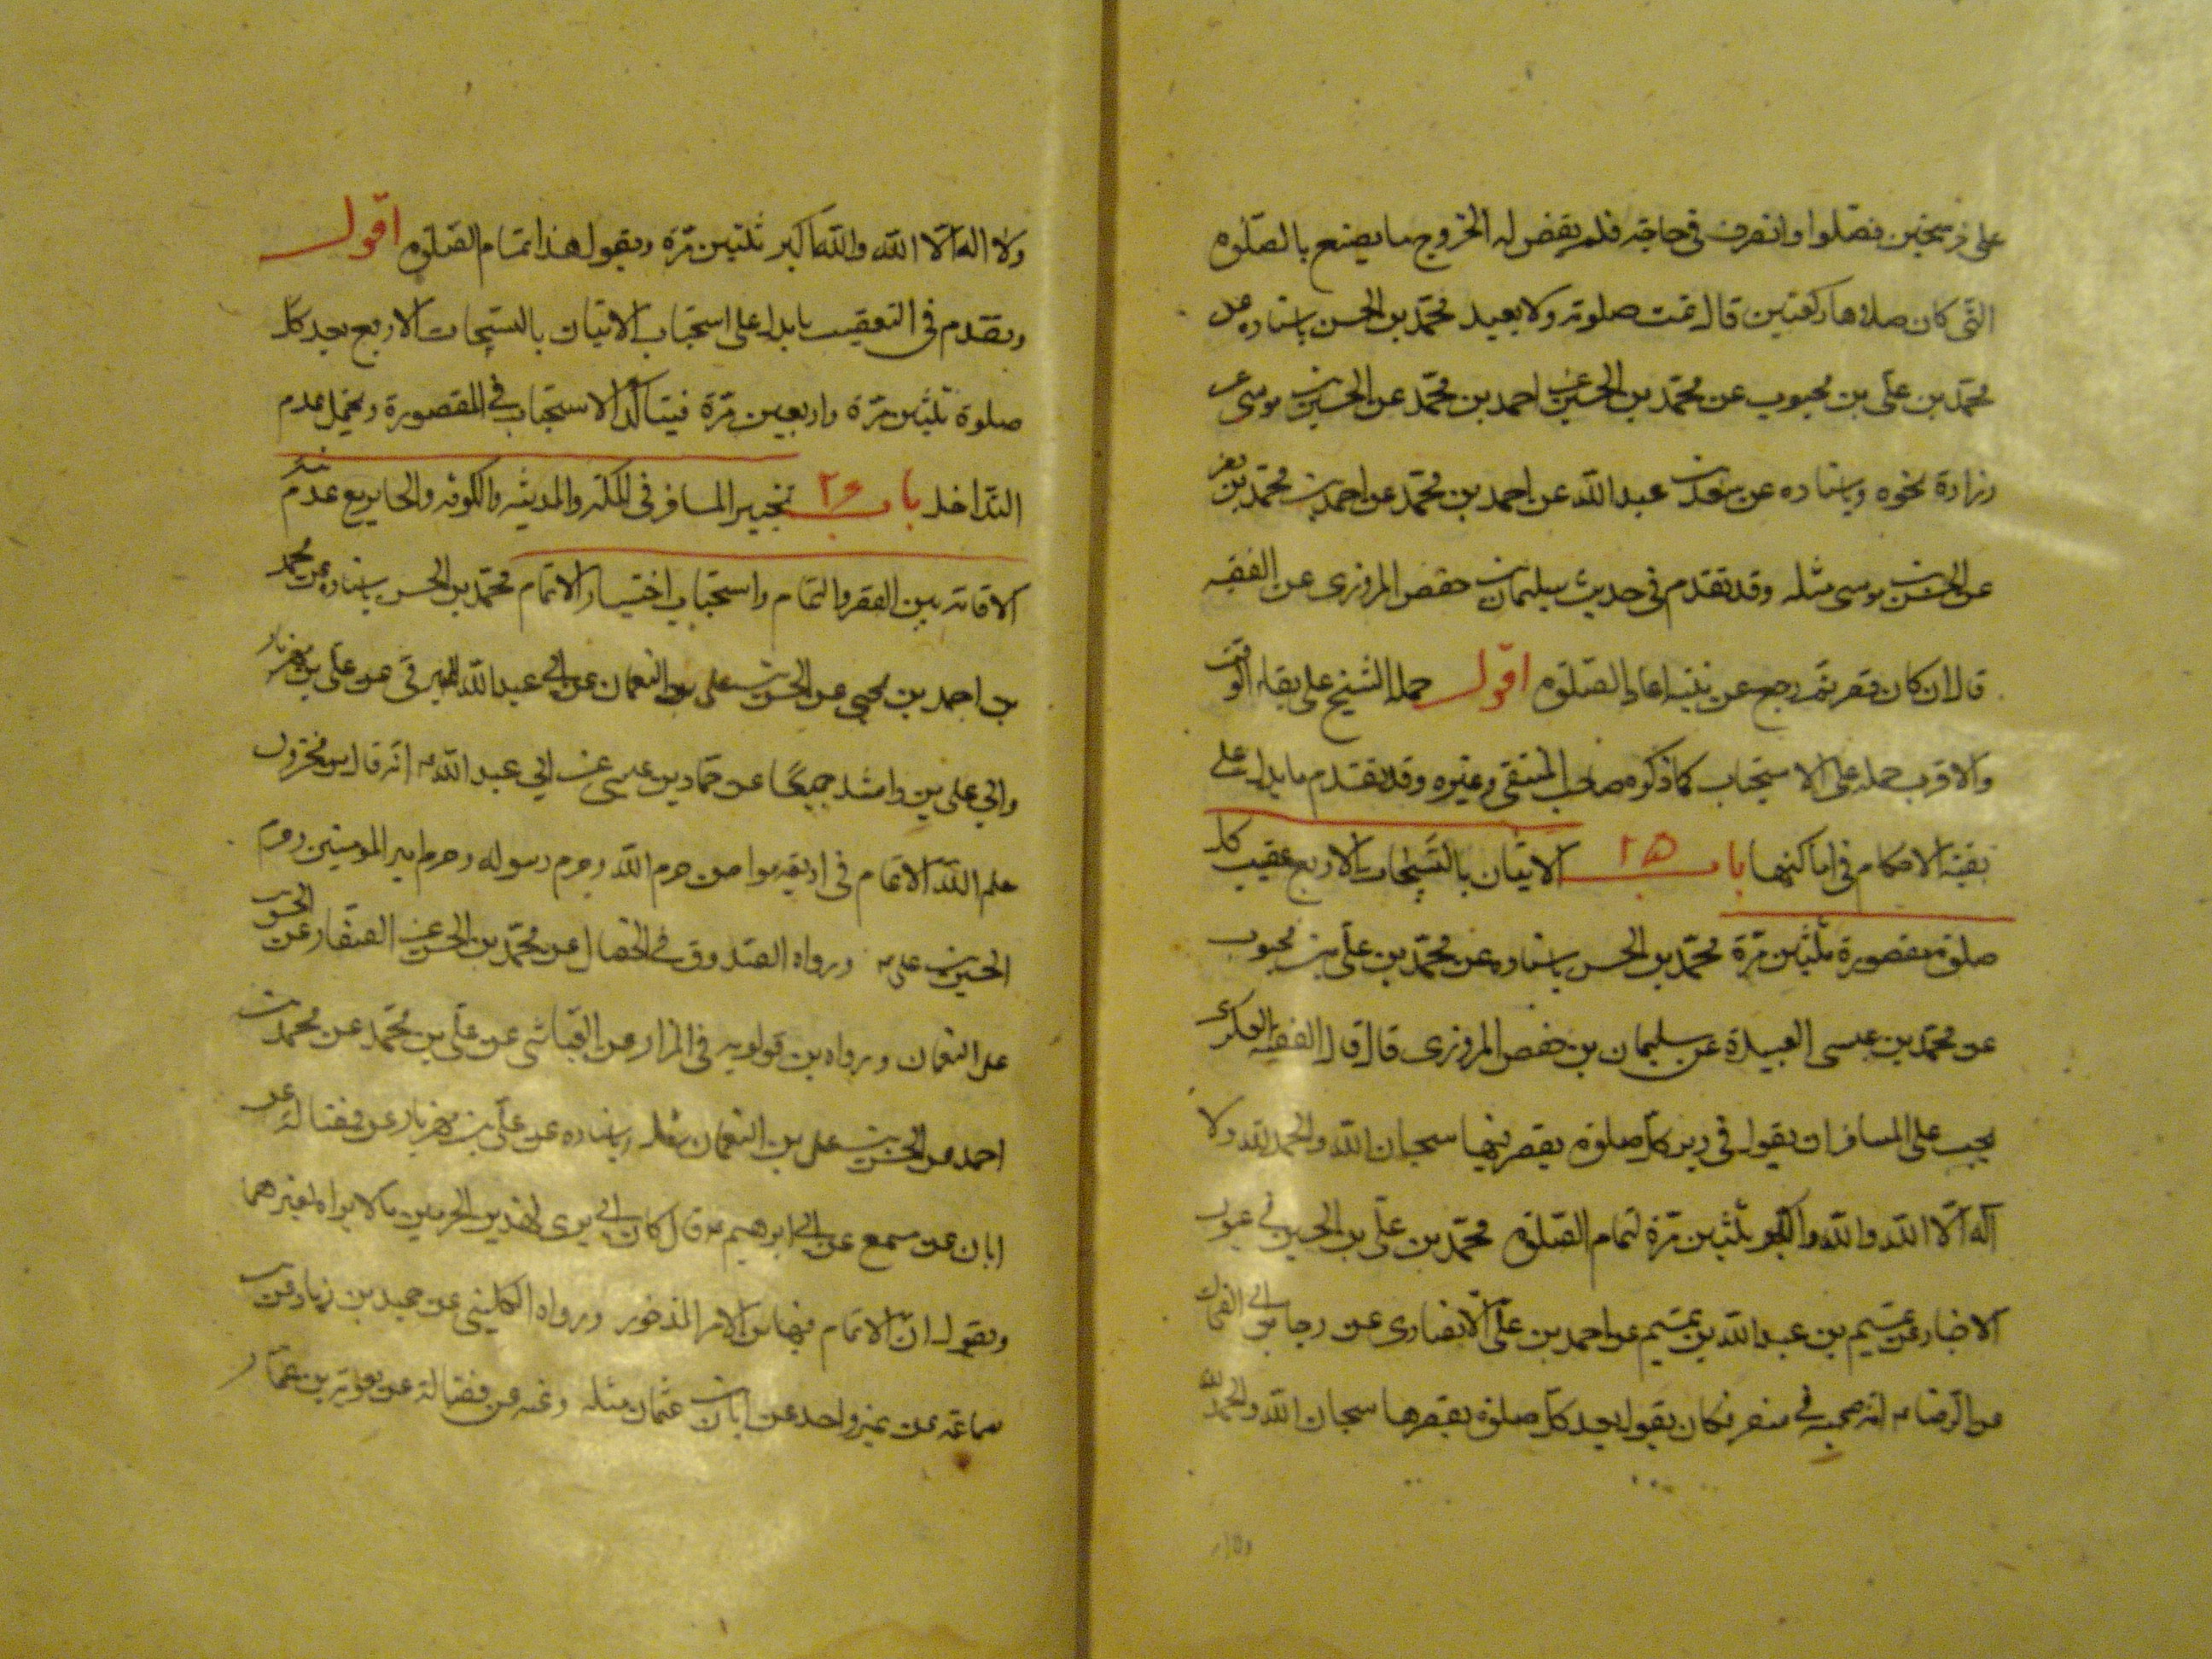 على فرسخين فصلوا وانصرف في حاجة فلم يقض له الخروج ما يصنع بالصلوة
التي كان صلاها ركعتين قال تمت صلوته ولا يعيد محمد بن الحسن باسناده عن
محمد بن علي بن محبوب عن محمد بن الحسين عن احمد بن محمد عن الحسين بن موسى عن
زرارة نحوه وباسناده عن سعد بن عبد الله عن احمد بن محمد عن احمد بن محمد بن
عن الحسن بن موسى مثله وقد تقدم في حديث سليمان بن حفص المروزي عن الفقيه
قال ان كان قصر ثم رجع عن نيته اعاد الصلوة اقول حمله الشيخ على بقاء الوقت
والاقرب حمله على الاستحباب كما ذكره صاحب المنتقى وغيره وقد تقدم ما يدل على
بقية الاحكام في اماكنها باب ٢٥ الاتيان بالتسبيحات الاربع عقيب كل
صلوة مقصورة ثلثين مرة محمد بن الحسن باسناده عن محمد بن علي بن محبوب
عن محمد بن عيسى العبيدة عن سليمان بن حفص المروزي قال قال الفقيه العسكري
يجب على المسافر ان يقول في دبر كل صلوة يقصر فيها سبحان الله والحمد لله ولا
اله الا الله والله واكبر ثلثين مرة لتمام الصلوة محمد بن علي بن الحسين في عيون
الاخبار عن تميم بن عبد الله بن تميم عن احمد بن علي الانصاري عن رجا بن ابي الضحاك
عن الرضا ع انه صحبه في سفر فكان يقول بعد كل صلوة يقصرها سبحان الله والحمد لله
ولا اله الا الله والله اكبر ثلثين مرة ويقول هذا تمام الصلوة اقول
وتقدم في التعقيب ما يدل على استحباب الاتيان بالتسبيحات الاربع بعد كل
صلوة ثلثين مرة واربعين مرة فيتأكد الاستحباب في المقصورة ويحتمل عدم
التداخل باب ٢٦ تخيير المسافر في المكة والمدينة والكوفة والحاير مع عدم نية
الاقامة بين القصر والتمام واستحباب اختيار الاتمام محمد بن الحسن باسناده عن محمد
بن احمد بن يحيى عن الحسن بن علي بن النعمان عن ابي عبد الله البرقي عن علي بن مهزيار
وابي علي بن راشد جميعا عن حماد بن عيسى عن ابي عبد الله ع انه قال من مخزون
علم الله الاتمام في اربعة مواطن حرم الله وحرم رسوله وحرم امير المومنين وحرم
الحسين بن علي ع ورواه الصدوق في الخصال عن محمد بن الحسن عن الصفار عن الحسن بن
علي النعمان ورواه بن قولويه في المزار عن العياشي عن علي بن محمد عن محمد بن
احمد عن الحسن بن علي بن النعمان مثله وباسناده عن علي بن مهزيار عن فضالة عن
ابان عن مسمع عن ابي ابرهيم ع قال كان ابي يرى لهذين الحرمين ما لا يراه لغيرهما
ويقول ان الاتمام فيهما من الامر المذخور ورواه الكليني عن حميد بن زياد عن بن
سماعة عن غير واحد عن ابان بن عثمان مثله وعنه عن فضالة عن معوية بن عمار